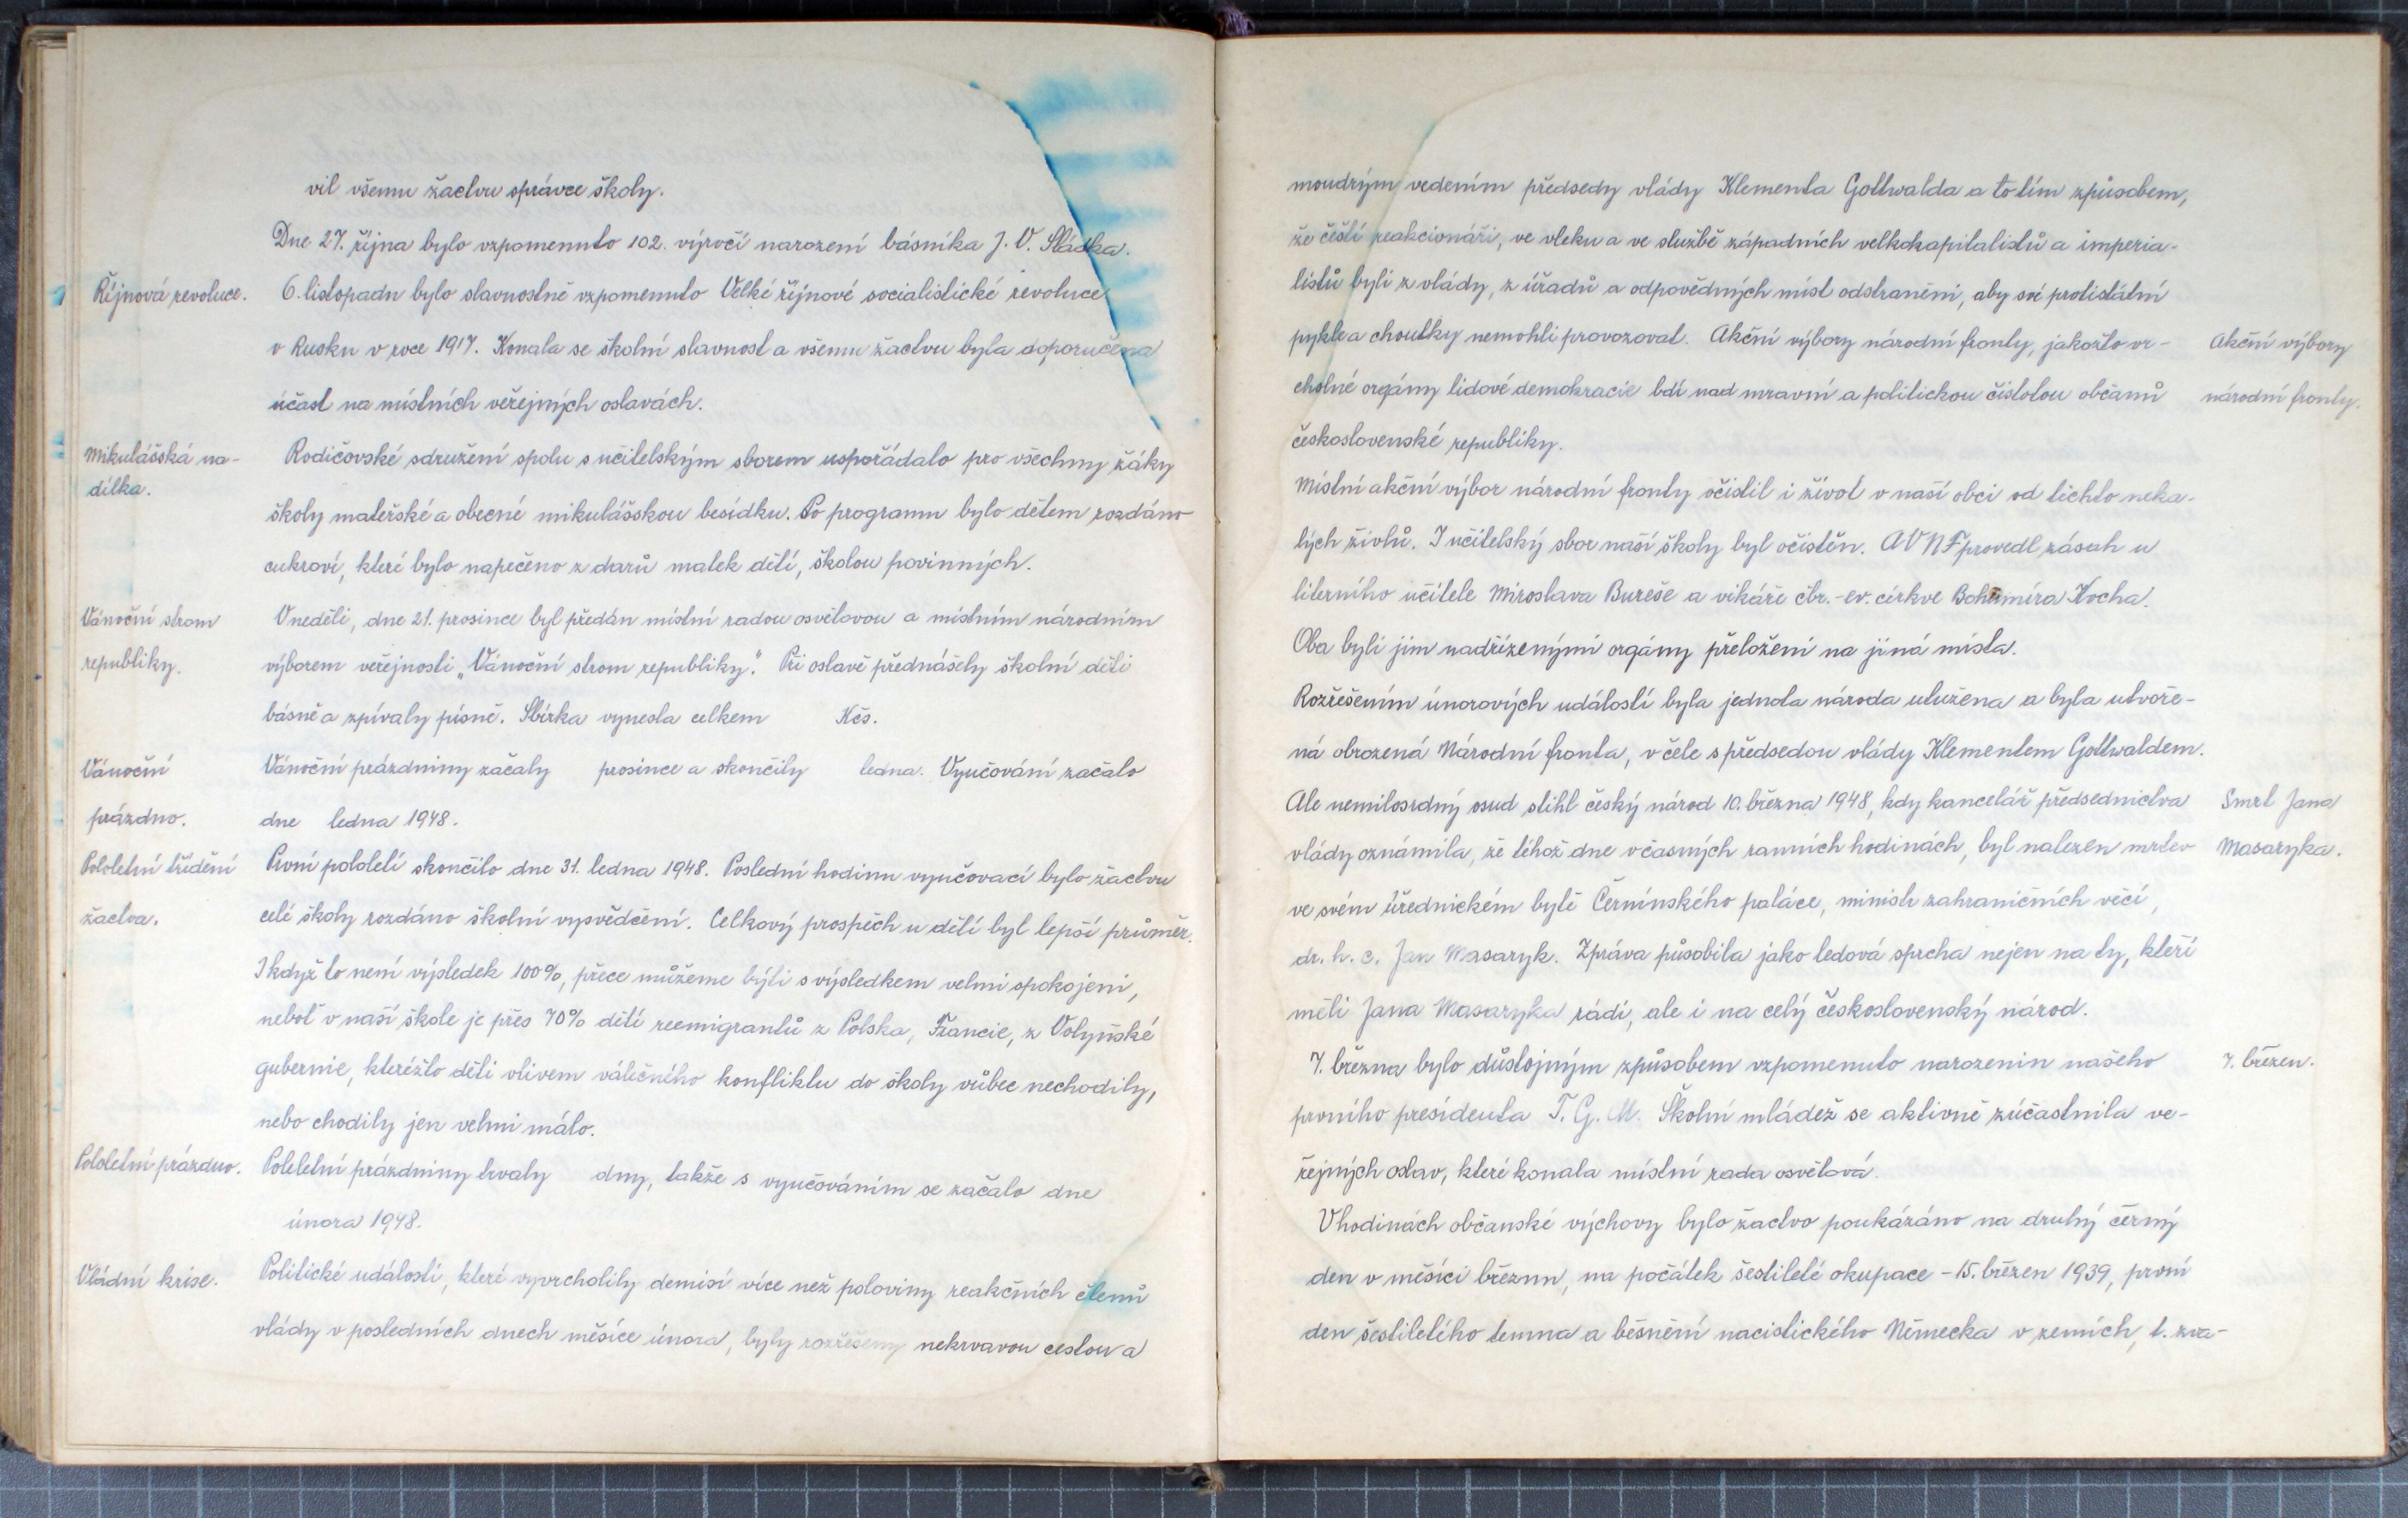 vil všemu žactvu správce školy.
Dne 27. října bylo vzpomenuto 102. výročí narození básníka J. V. Sládka.
Říjnová revoluce.
6. listopadu bylo slavnostně vzpomenuto Velké říjnové socialistické revoluce
v Rusku v roce 1917. Konala se školní slavnost a všemu žactvu byla doporučena
účast na místních veřejných oslavách.
Mikulášská na-
dílka.
Rodičovské sdružení spolu s učitelským sborem uspořádalo pro všechny žáky
školy mateřské a obecné mikulášskou besídku. Po programu bylo dětem rozdáno
cukroví, které bylo napečeno z darů matek dětí, školou povinných.
Vánoční strom
republiky.
V neděli, dne 21. prosince byl předán místní radou osvětovou a místním národním
výborem veřejnosti „Vánoční strom republiky". Při oslavě přednášely školní děti
básně a zpívaly písně. Sbírka vynesla celkem Kčs.
Vánoční
prázdno.
Vánoční prázdniny začaly prosince a skončily ledna. Vyučování začalo
dne ledna 1948.
Pololetní třídění
žactva.
První pololetí skončilo dne 31. ledna 1948. Poslední hodinu vyučovací bylo žactvu
celé školy rozdáno školní vysvědčení. Celkový prospěch u dětí byl lepší průměr.
I když to není výsledek 100%, přece můžeme býti s výsledkem velmi spokojeni,
neboť v naší škole je přes 70% dětí reemigrantů z Polska, Francie, z Volyňské
gubernie, kteréžto děti vlivem válečného konfliktu do školy vůbec nechodily,
nebo chodily jen velmi málo.
Pololetní prázdno.
Pololetní prázdniny trvaly dny, takže s vyučováním se začalo dne
února 1948.
Vládní krise.
Politické události, které vyvrcholily demisí více než poloviny reakčních členů
vlády v posledních dnech měsíce února, byly rozřešeny nekrvavou cestou a
moudrým vedením předsedy vlády Klementa Gottwalda a to tím způsobem,
že čeští reakcionáři, ve vleku a ve službě západních velkokapitalistů a imperia-
listů byli z vlády, z úřadů a odpovědných míst odstraněni, aby své protistátní
pykle a choutky nemohli provozovat. Akční výbory národní fronty, jakožto vr-
cholné orgány lidové demokracie bdí nad mravní a politickou čistotou občanů
československé republiky.
Akční výbory
národní fronty.
Místní akční výbor národní fronty očistil i život v naší obci od těchto neka-
lých živlů. I učitelský sbor naší školy byl očistěn. AVNF provedl zásah u
literního učitele Miroslava Bureše a vikáře čbr.-ev. církve Bohumíra Kocha.
Oba byli jim nadřízenými orgány přeloženi na jiná místa.
Rozřešením únorových událostí byla jednota národa utužena a byla utvoře-
ná obrozená Národní fronta, v čele s předsedou vlády Klementem Gottwaldem.
Ale nemilosrdný osud stihl český národ 10. března 1948, kdy kancelář předsednictva
vlády oznámila, že téhož dne v časných ranních hodinách, byl nalezen mrtev
ve svém úřednickém bytě Černínského paláce, ministr zahraničních věcí,
dr. h. c. Jan Masaryk. Zpráva působila jako ledová sprcha nejen na ty, kteří
měli Jana Masaryka rádi, ale i na celý československý národ.
Smrt Jana
Masaryka.
7. března bylo důstojným způsobem vzpomenuto narozenin našeho
prvního presidenta T. G. M. Školní mládež se aktivně zúčastnila ve-
řejných oslav, které konala místní rada osvětová.
7. březen.
V hodinách občanské výchovy bylo žactvo poukázáno na druhý černý
den v měsíci březnu, na počátek šestileté okupace - 15. březen 1939, první
den šestiletého temna a běsnění nacistického Německa v zemích, t. zva-